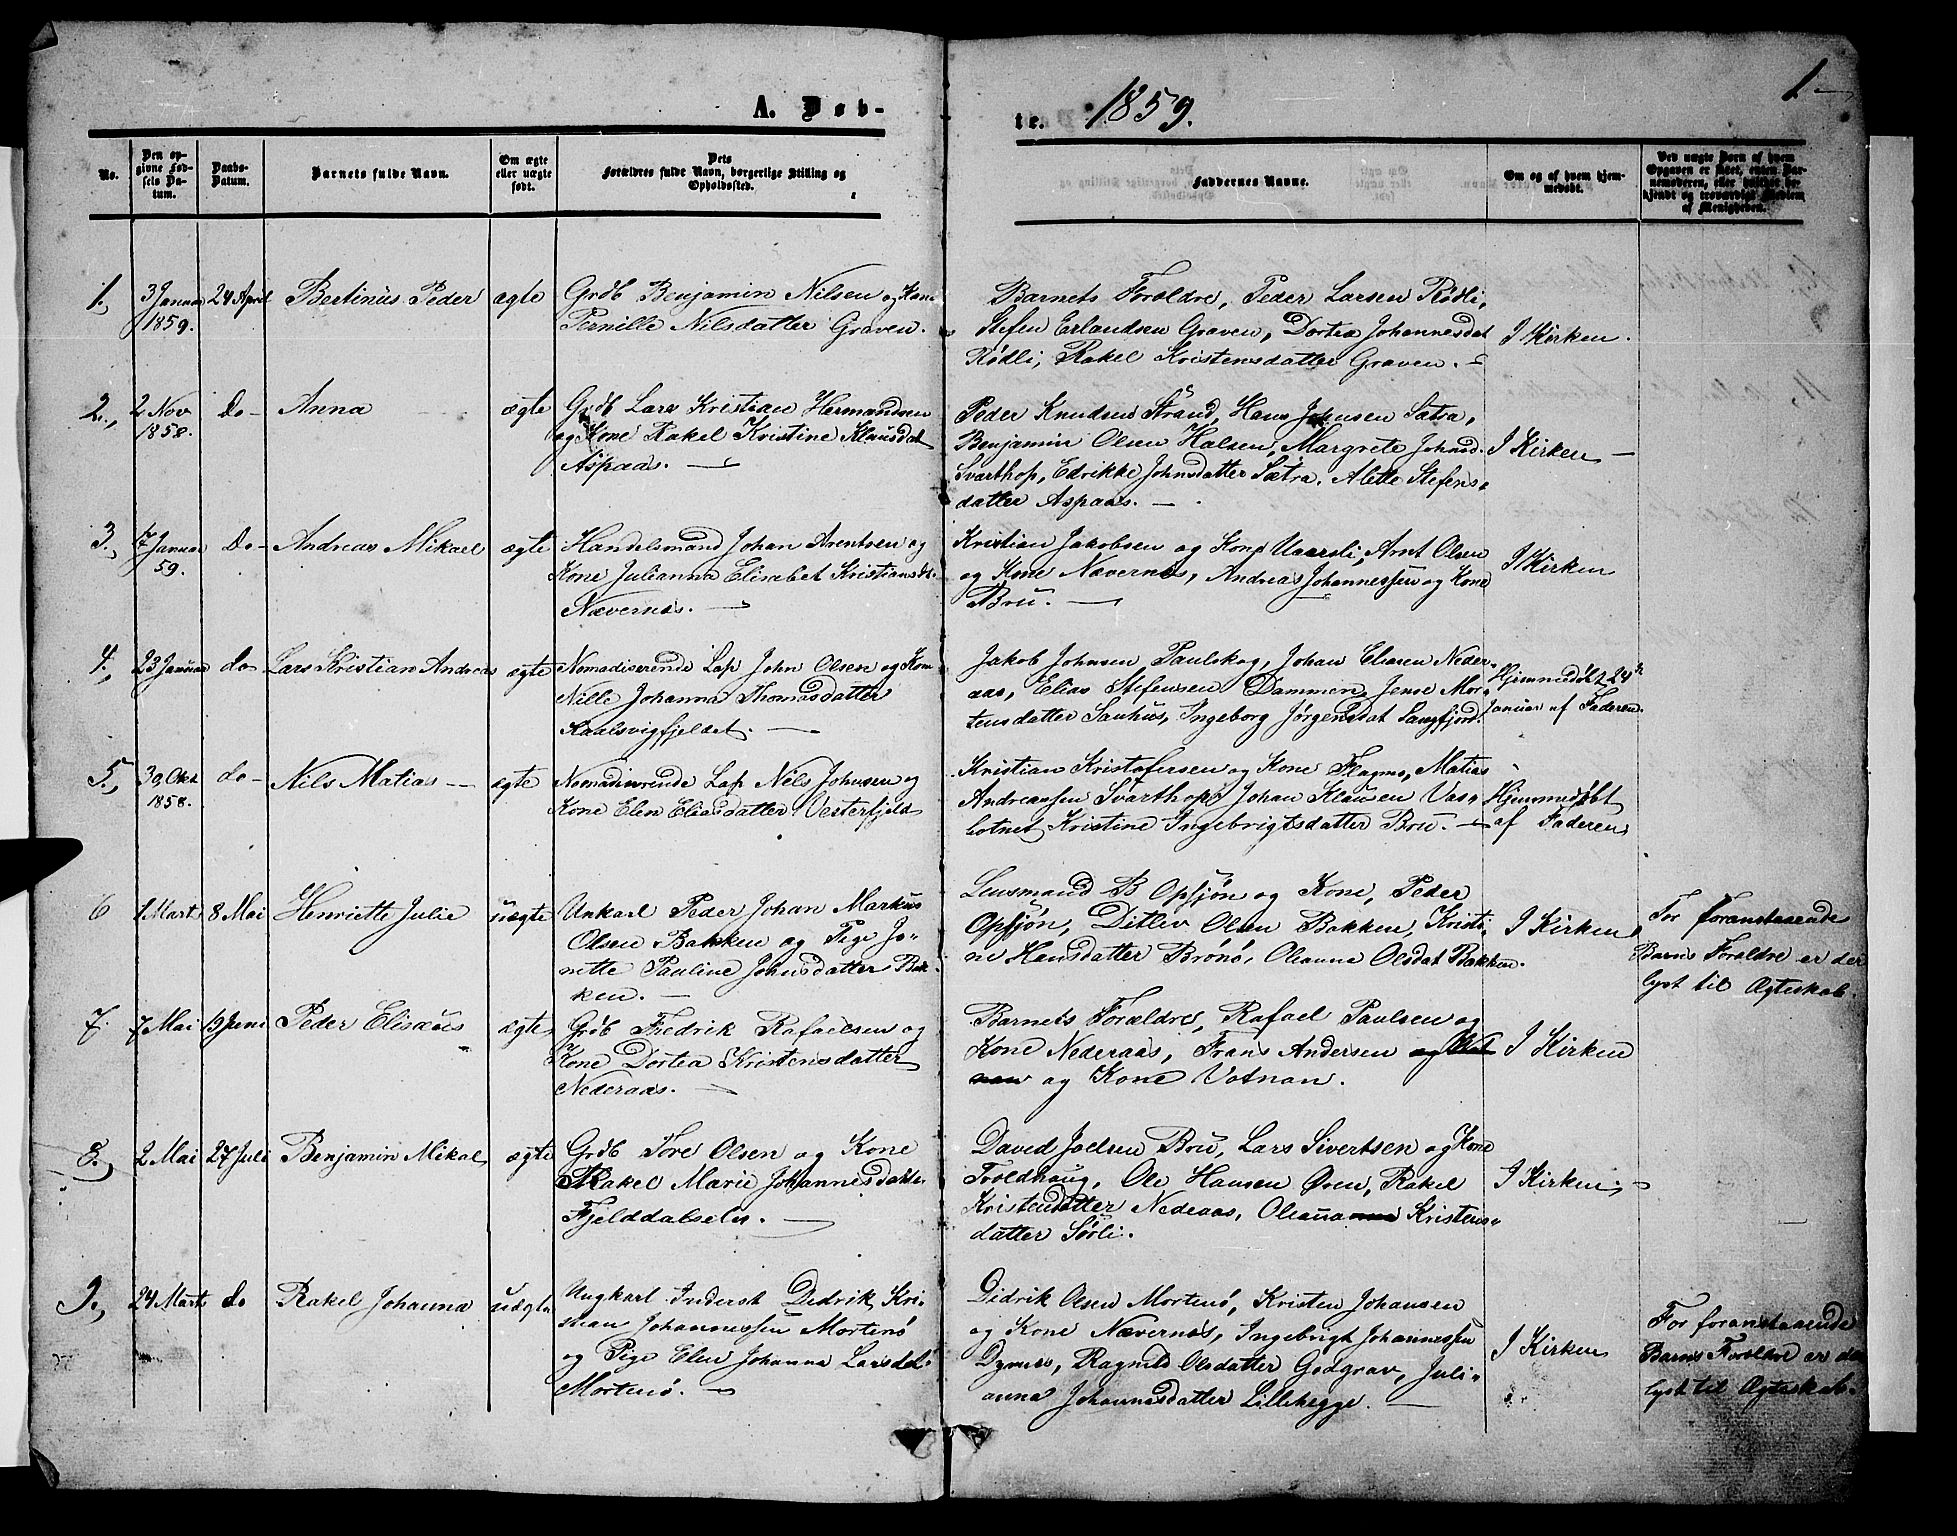 A. Døb-
te. 1859.
1.
No.
Den op-
givne Fød-
sels Da-
tum.
Daabs-
Datum.
Barnets fulde Navn.
Om ægte
eller uægte
født.
Dets
Forældres fulde Navn, borgerlige Stilling og
Opholdssted.
Faddernes Navne.
Om og af hvem hjem-
medøbt.
Ved uægte Born af hvem
Opgaven er skeet, enten Bar-
nemoderen, eller hvilket be-
kjendt og troværdigt Medlem
af Menigheden.
1. 3 Januar
1859.
24 April
Bertinus Peder
ægte
Grdb Benjamin Nilsen og Kone
Pernille Nilsdatter Graven.
Barnets Forældre, Peder Larsen Rødli,
Stefen Erlandsen Graven, Dortea Johannesdat
Rødli, Rakel Kristensdatter Graven. –
I Kirken.
2. 2 Nov
1858.
do –
Anna
ægte
Grdb Lars Kristian Hermandsen
og Kone Rakel Kristine Klausdat
Aspaas. –
Peder Knudsen Strand, Hans Johnsen Sætra,
Benjamin Olsen Halsen, Margrete Johnsd.
Svarthop, Edrikke Johnsdatter Sætra. Alette Stefens-
datter Aspaas. –
I Kirken –
3. 7 Januar
59.
Do –
Andreas Mikael
ægte
Handelsmand Johan Arentsen og
Kone Julianna Elisabet Kristiansdt.
Nævernæs. –
Kristian Jakobsen og Kone Vaarsli, Arnt Olsen
og Kone Nævernes, Andreas Johannessen og Kone
Bru. –
I Kirken
4. 23 Januar
do
Lars Kristian Andreas
ægte
Nomadiserende Lap John Olsen og Kone
Nille Johanna Thomasdatter
Kaalsvigfjeldet. –
Jakob Johnsen Paulskog, Johan Eliasen Neder-
aas, Elias Stefensen Dammen, Jense Mor-
tensdatter Sauhus, Ingeborg Jørgensdat Langfjord.
Hjemmedøbt 24de
Januar af Faderen.
5. 30 Okt
1858.
do –
Nils Matias –
ægte
Nomadiserende Lap Nils Johnsen og
Kone Elen Eliasdatter Vesterfjeld
Kristian Kristofersen og Kone Flagmo, Matias
Andreassen Svarthop, Johan Klausen Vas-
botnet Kristine Ingebrigtsdatter Bru. –
Hjemmedøbt
af Faderen
6 1 Mart
8 Mai
Henriette Julie
uægte
Unkarl Peder Johan Markus
Olsen Bakken og Pige Jo-
nette Pauline Johnsdatter Bak-
ken. –
Lensmand B Opsjøn og Kone, Peder
Opsjøn, Ditlev Olsen Bakken, Kristi-
ne Hansdatter Brønø, Oleanna Olsdat Bakken.
I Kirken
For foranstaaende
Barns Forældre er der
lyst til Ægteskab.
7. 7 Mai
19 Juni
Peder Elisæus
ægte
Grdb Fredrik Rafaelsen og
Kone Dortea Kristensdatter
Nederaas. –
Barnets Forældre, Rafael Paulsen og
Kone Nederaas, Frans Andersen og Vot
nan og Kone Votnan.
I Kirken
8. 2 Mai
27 Juli
Benjamin Mikal
ægte
Grdb Tore Olsen og Kone
Rakel Marie Johannesdatter
Fjelddalselv. –
David Joelsen Bru, Lars Sivertsen og Kone
Troldhaug, Ole Hansen Øren, Rakel
Kristensdatter Nederaas, Oleana Kristens-
datter Sørli.
I Kirken. –
9. 24 Mart
do
Rakel Johanna
uægte
Ungkarl Inderst Didrik Kri-
stian Johannessen Mortenø
og Pige Elen Johanna Larsdat
Mortenø. –
Didrik Olsen Mortenø, Kristen Johansen
og Kone Nævernæs, Ingebrigt Johannessen
Dymes, Ragnild Olsdatter Godgrav, Juli-
anna Johannesdatter Lillehegge. –
I Kirken
For foranstaaende
Barns Forældre er der
lyst til Ægteskab.